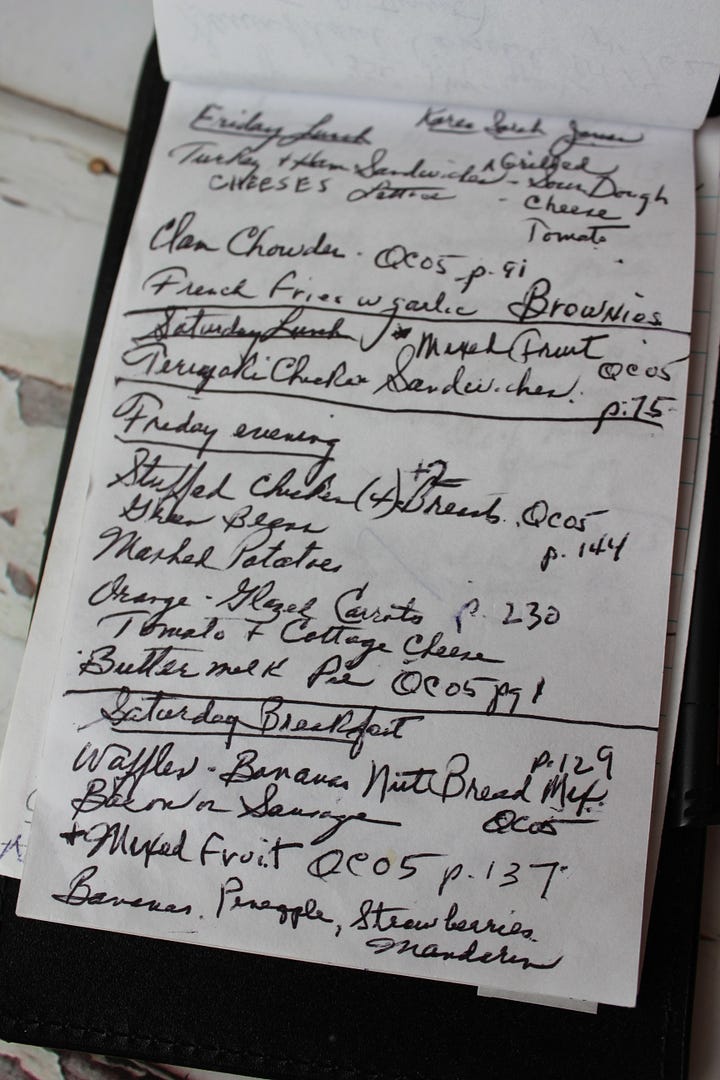 Friday Lunch Karen Sarah James
Turkey + Ham Sandwiches - Grilled Sour Dough
CHEESES Lettuce - Cheese
Tomato
Clam Chowder - QC05 p. 91
French Fries w garlic Brownies
Saturday Lunch * Mixed Fruit
QC05
Teriyaki Chicken Sandwiches p. 75
Friday evening
+2
Stuffed Chicken (4) Breasts. QC05
p. 144
Green Beans
Mashed Potatoes
Orange - Glazed Carrots p. 230
Tomato + Cottage Cheese
Buttermilk Pie QC05 pg 1
Saturday Breakfast
p. 129
Waffles - Bananas Nut Bread Mix
QC05
Bacon or Sausage
+ Mixed Fruit QC05 p. 137
Bananas. Pineapple, Strawberries.
Manderin